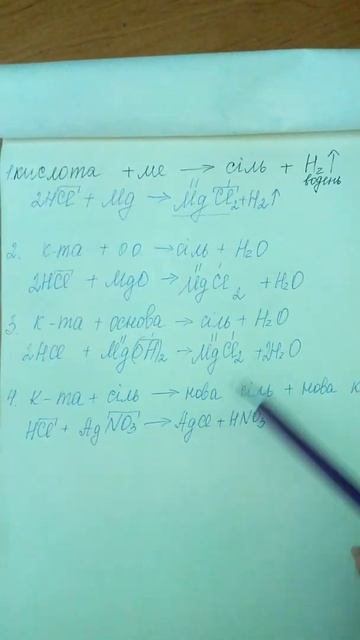 1 кислота + ме → сіль + H₂↑
водень
2HCl + Mg → MgCl₂ + H₂↑
2. к-та + оо → сіль + H₂O
2HCl + MgO → MgCl₂ + H₂O
3. к-та + основа → сіль + H₂O
2HCl + Mg(OH)₂ → MgCl₂ + 2H₂O
4. к-та + сіль → нова сіль + нова к
HCl + AgNO₃ → AgCl + HNO₃